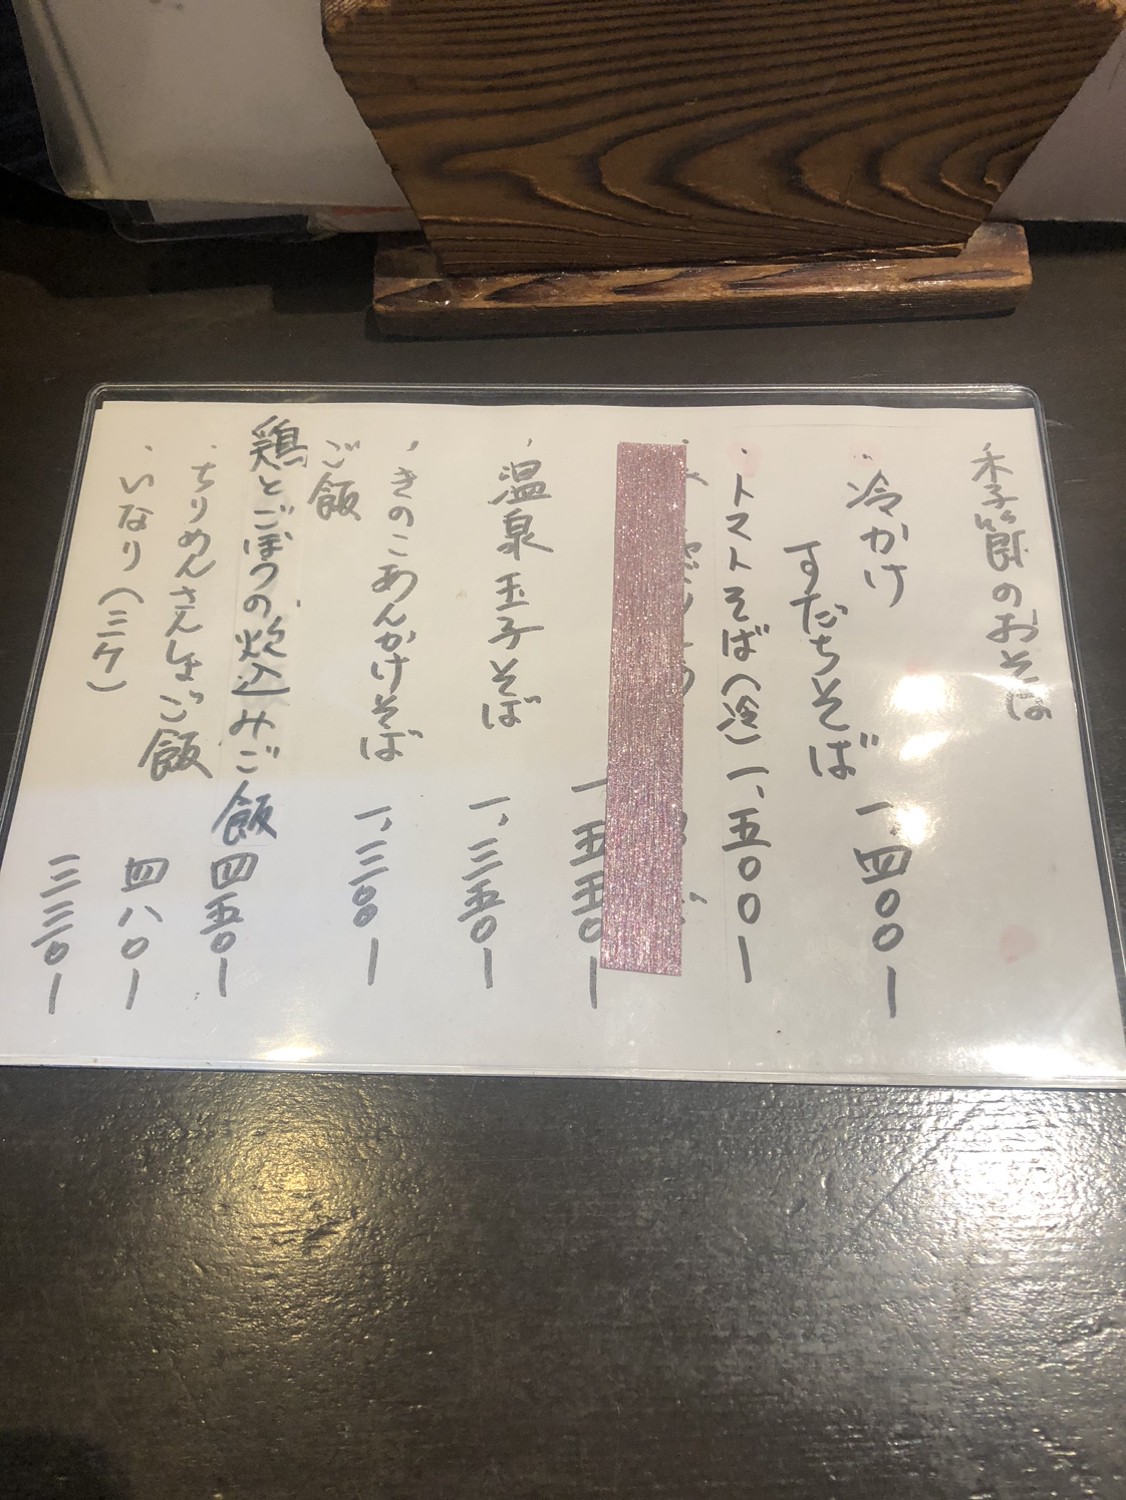 季節のおそば
・冷かけ
すだちそば 一、四〇〇ー
・トマトそば(冷) 一、五〇〇ー
一、五五〇ー
・温泉玉子そば 一、三五〇ー
・きのこあんかけそば 一、三〇〇ー
ご飯
鶏とごぼうの炊込みご飯 四五〇ー
・ちりめんさんしょご飯 四八〇ー
・いなり(三ケ) 三三〇ー